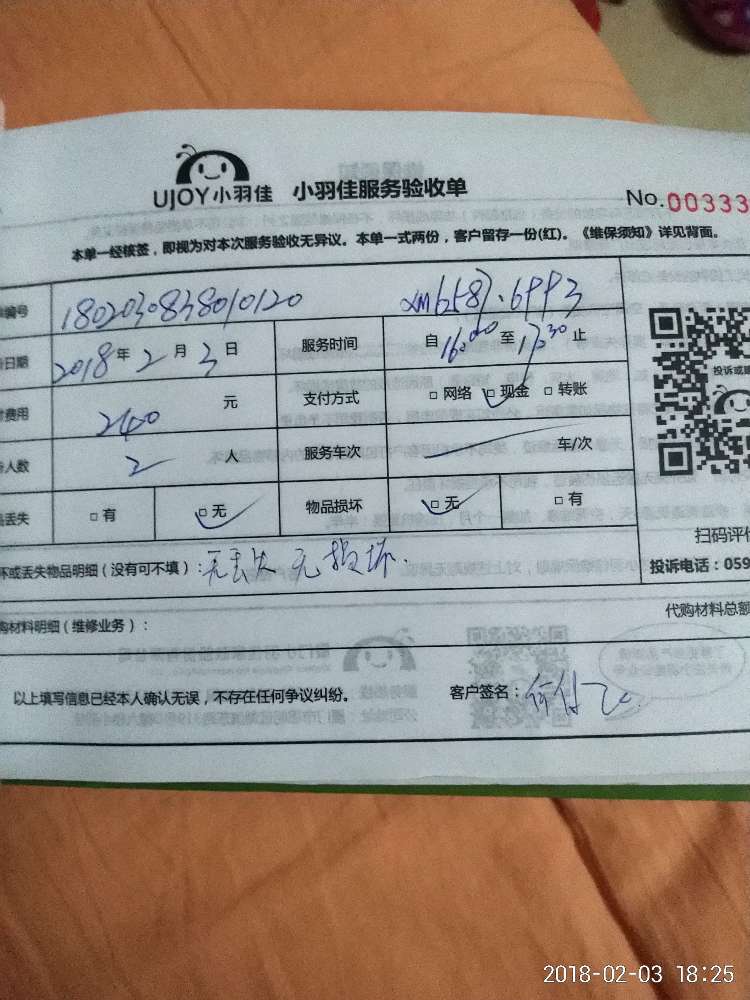 UJOY小羽佳 小羽佳服务验收单 No.00333
本单一经核签，即视为对本次服务验收无异议。本单一式两份，客户留存一份(红)。《维保须知》详见背面。
编号 1802030838010120
日期 2018年2月3日 服务时间 自16:00至17:30止
费用 2400元 支付方式 □网络 □现金 □转账
人数 2人 服务车次 车/次
丢失 □有 □无 物品损坏 □无 □有
坏或丢失物品明细（没有可不填）：无丢失 无损坏.
购材料明细（维修业务）： 代购材料总额
以上填写信息已经本人确认无误，不存在任何争议纠纷。 客户签名：
投诉或
扫码评价
投诉电话：059
2018-02-03 18:25